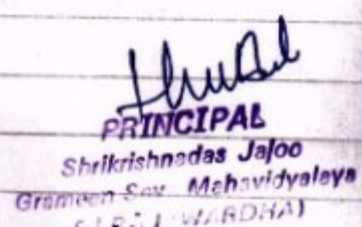 PRINCIPAL
Shrikrishnadas Jajoo
Grameen Sev Mahavidyalaya
WARDHA)